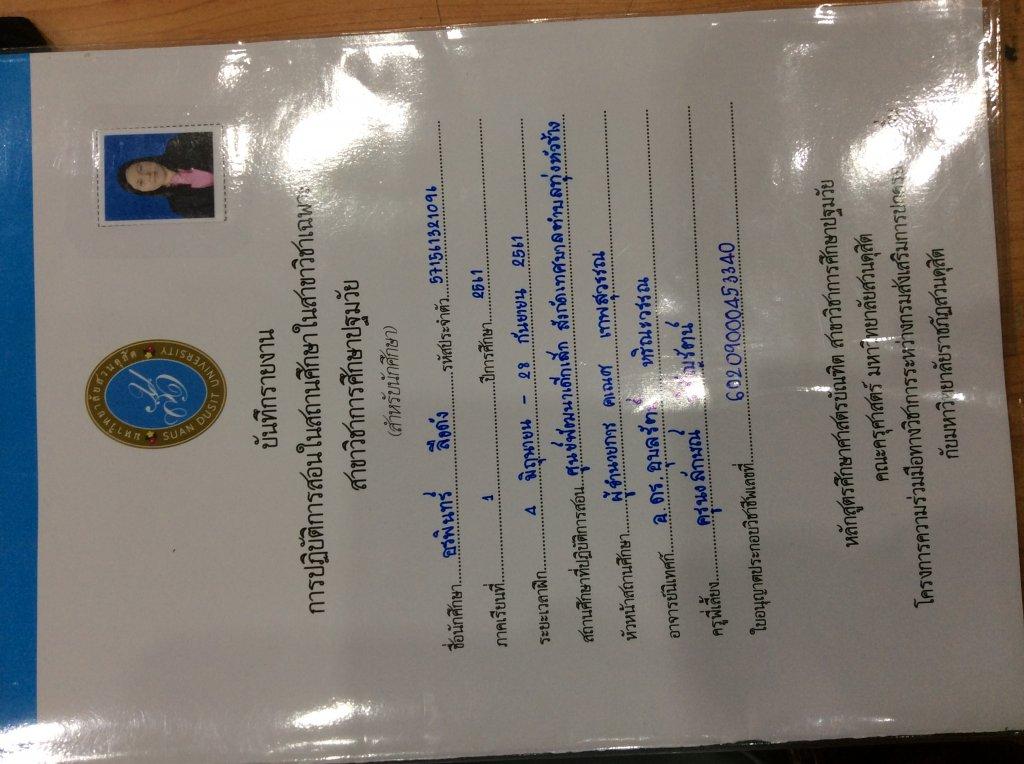 มหาวิทยาลัยสวนดุสิต
SUAN DUSIT UNIVERSITY
บันทึกรายงาน
การปฏิบัติการสอนในสถานศึกษาในสาขาวิชาเฉพาะ
สาขาวิชาการศึกษาปฐมวัย
(สำหรับนักศึกษา)
ชื่อนักศึกษา รหัสประจำตัว 57156132109
ภาคเรียนที่ 1 ปีการศึกษา 2561
ระยะเวลาฝึก 4 มิถุนายน - 28 กันยายน 2561
สถานศึกษาที่ปฏิบัติการสอน ศูนย์พัฒนาเด็กเล็ก สังกัดเทศบาลตำบลทุ่งหัวช้าง
หัวหน้าสถานศึกษา ผู้อำนวยการ คเณศ เทพสุวรรณ
อาจารย์นิเทศก์ อ.ดร.
ครูพี่เลี้ยง ครูนงลักษณ์
ใบอนุญาตประกอบวิชาชีพเลขที่ 60209000453340
หลักสูตรศึกษาศาสตรบัณฑิต สาขาวิชาการศึกษาปฐมวัย
คณะครุศาสตร์ มหาวิทยาลัยสวนดุสิต
โครงการความร่วมมือทางวิชาการระหว่างกรมส่งเสริมการปกครอง
กับมหาวิทยาลัยราชภัฏสวนดุสิต